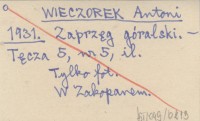 WIECZOREK Antoni
1931. Zaprzęg góralski. –
Tęcza 5, nr 5, il.
Tylko fot.
W Zakopanem.